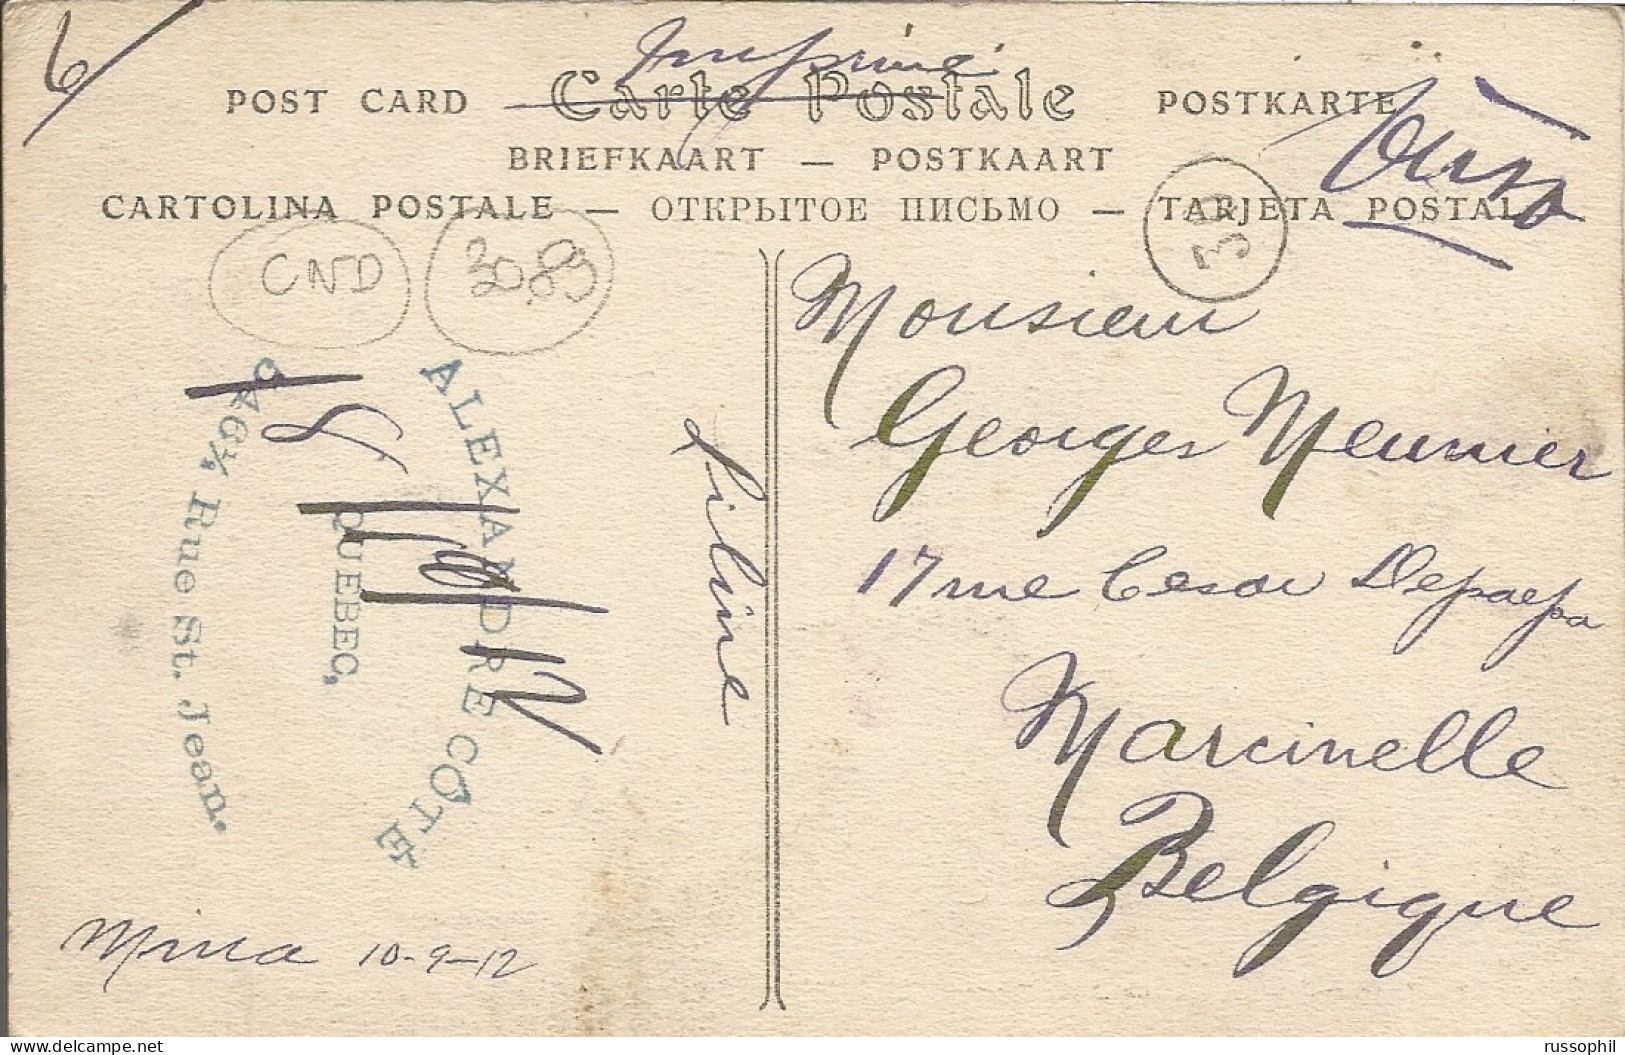 6
Imprimé
POST CARD Carte Postale POSTKARTE
BRIEFKAART — POSTKAART
CARTOLINA POSTALE — ОТКРЫТОЕ ПИСЬМО — TARJETA POSTAL
CND
30.89
39
ALEXANDRE COTE
QUEBEC,
246½, Rue St. Jean.
Monsieur
Georges Meunier
17 rue Cesar Depaepe
Marcinelle
Belgique
10-9-12
russophil